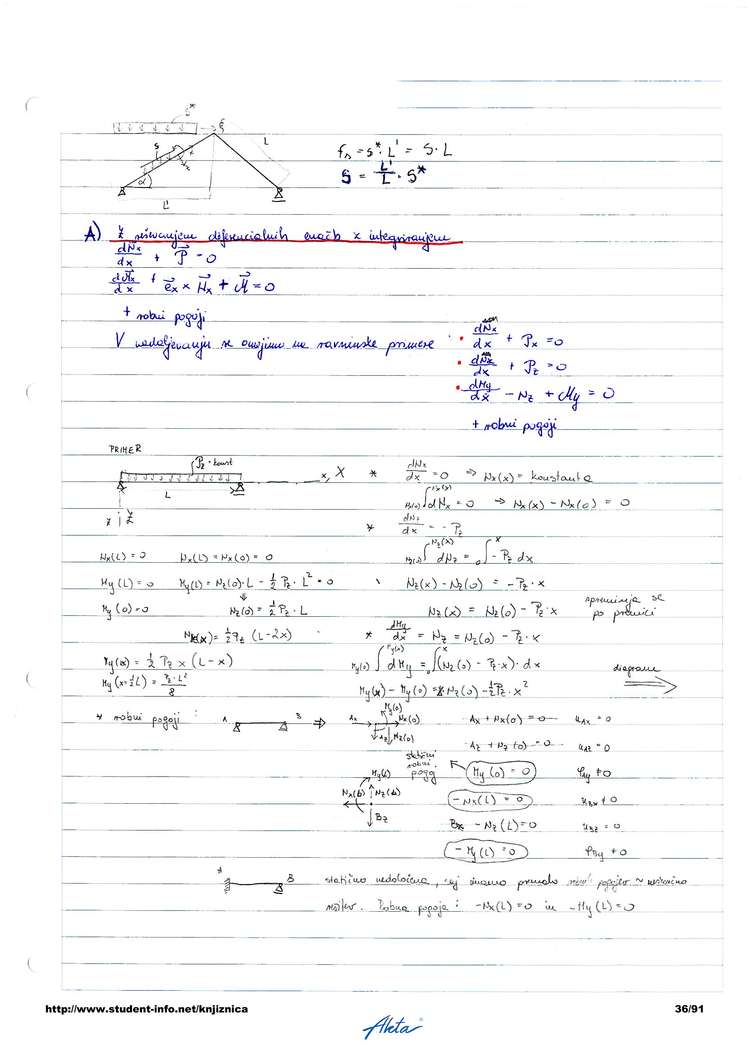 S*
S
α
L
L'
fs = s* · L' = S · L
S = L'/L · S*
A) Z reševanjem diferencialnih enačb z integriranjem
dN⃗x/dx + P⃗ = 0
dM⃗x/dx + e⃗x × N⃗x + M⃗ = 0
+ robni pogoji
V nadaljevanju se omejimo na ravninske primere :
• dNx/dx + Px = 0
• dNz/dx + Pz = 0
• dMy/dx - Nz + My = 0
+ robni pogoji
PRIMER
Pz = konst
L
x, X
z Z
* dNx/dx = 0 ⇒ Nx(x) = konstanta
Nx(0)∫Nx(x) dNx = 0 ⇒ Nx(x) - Nx(0) = 0
* dNz/dx = - Pz
Nz(0)∫Nz(x) dNz = 0∫x - Pz dx
Nx(L) = 0 Nx(L) = Nx(0) = 0
My(L) = 0 My(L) = Nz(0)·L - ½ Pz · L² = 0
Nz(x) - Nz(0) = - Pz · x
My(0) = 0 Nz(0) = ½ Pz · L
Nz(x) = Nz(0) - Pz · x
spreminja se
po premici
Nz(x) = ½ qz (L-2x)
* dMy/dx = Nz = Nz(0) - Pz · x
My(x) = ½ Pz x (L - x)
My(0)∫My(x) dMy = 0∫x (Nz(0) - Pz · x) · dx
diagrami
My(x=½L) = Pz·L²/8
My(x) - My(0) = x Nz(0) - ½ Pz · x²
* robni pogoji :
A B ⇒
Ax My(0) Nx(0)
Az Nz(0)
Ax + Nx(0) = 0 uAx = 0
Az + Nz(0) = 0 uAz = 0
statični
robni
pogoj
My(0) = 0 φAy ≠ 0
My(L)
Nx(L) Nz(L)
Bz
- Nx(L) = 0 uBx ≠ 0
Bz - Nz(L) = 0 uBz = 0
- My(L) = 0 φBy ≠ 0
A B
statično nedoločena, saj imamo premalo robnih pogojev ~
rešitev. Robna pogoja : -Nx(L) = 0 in -My(L) = 0
http://www.student-info.net/knjiznica
36/91
Aleta